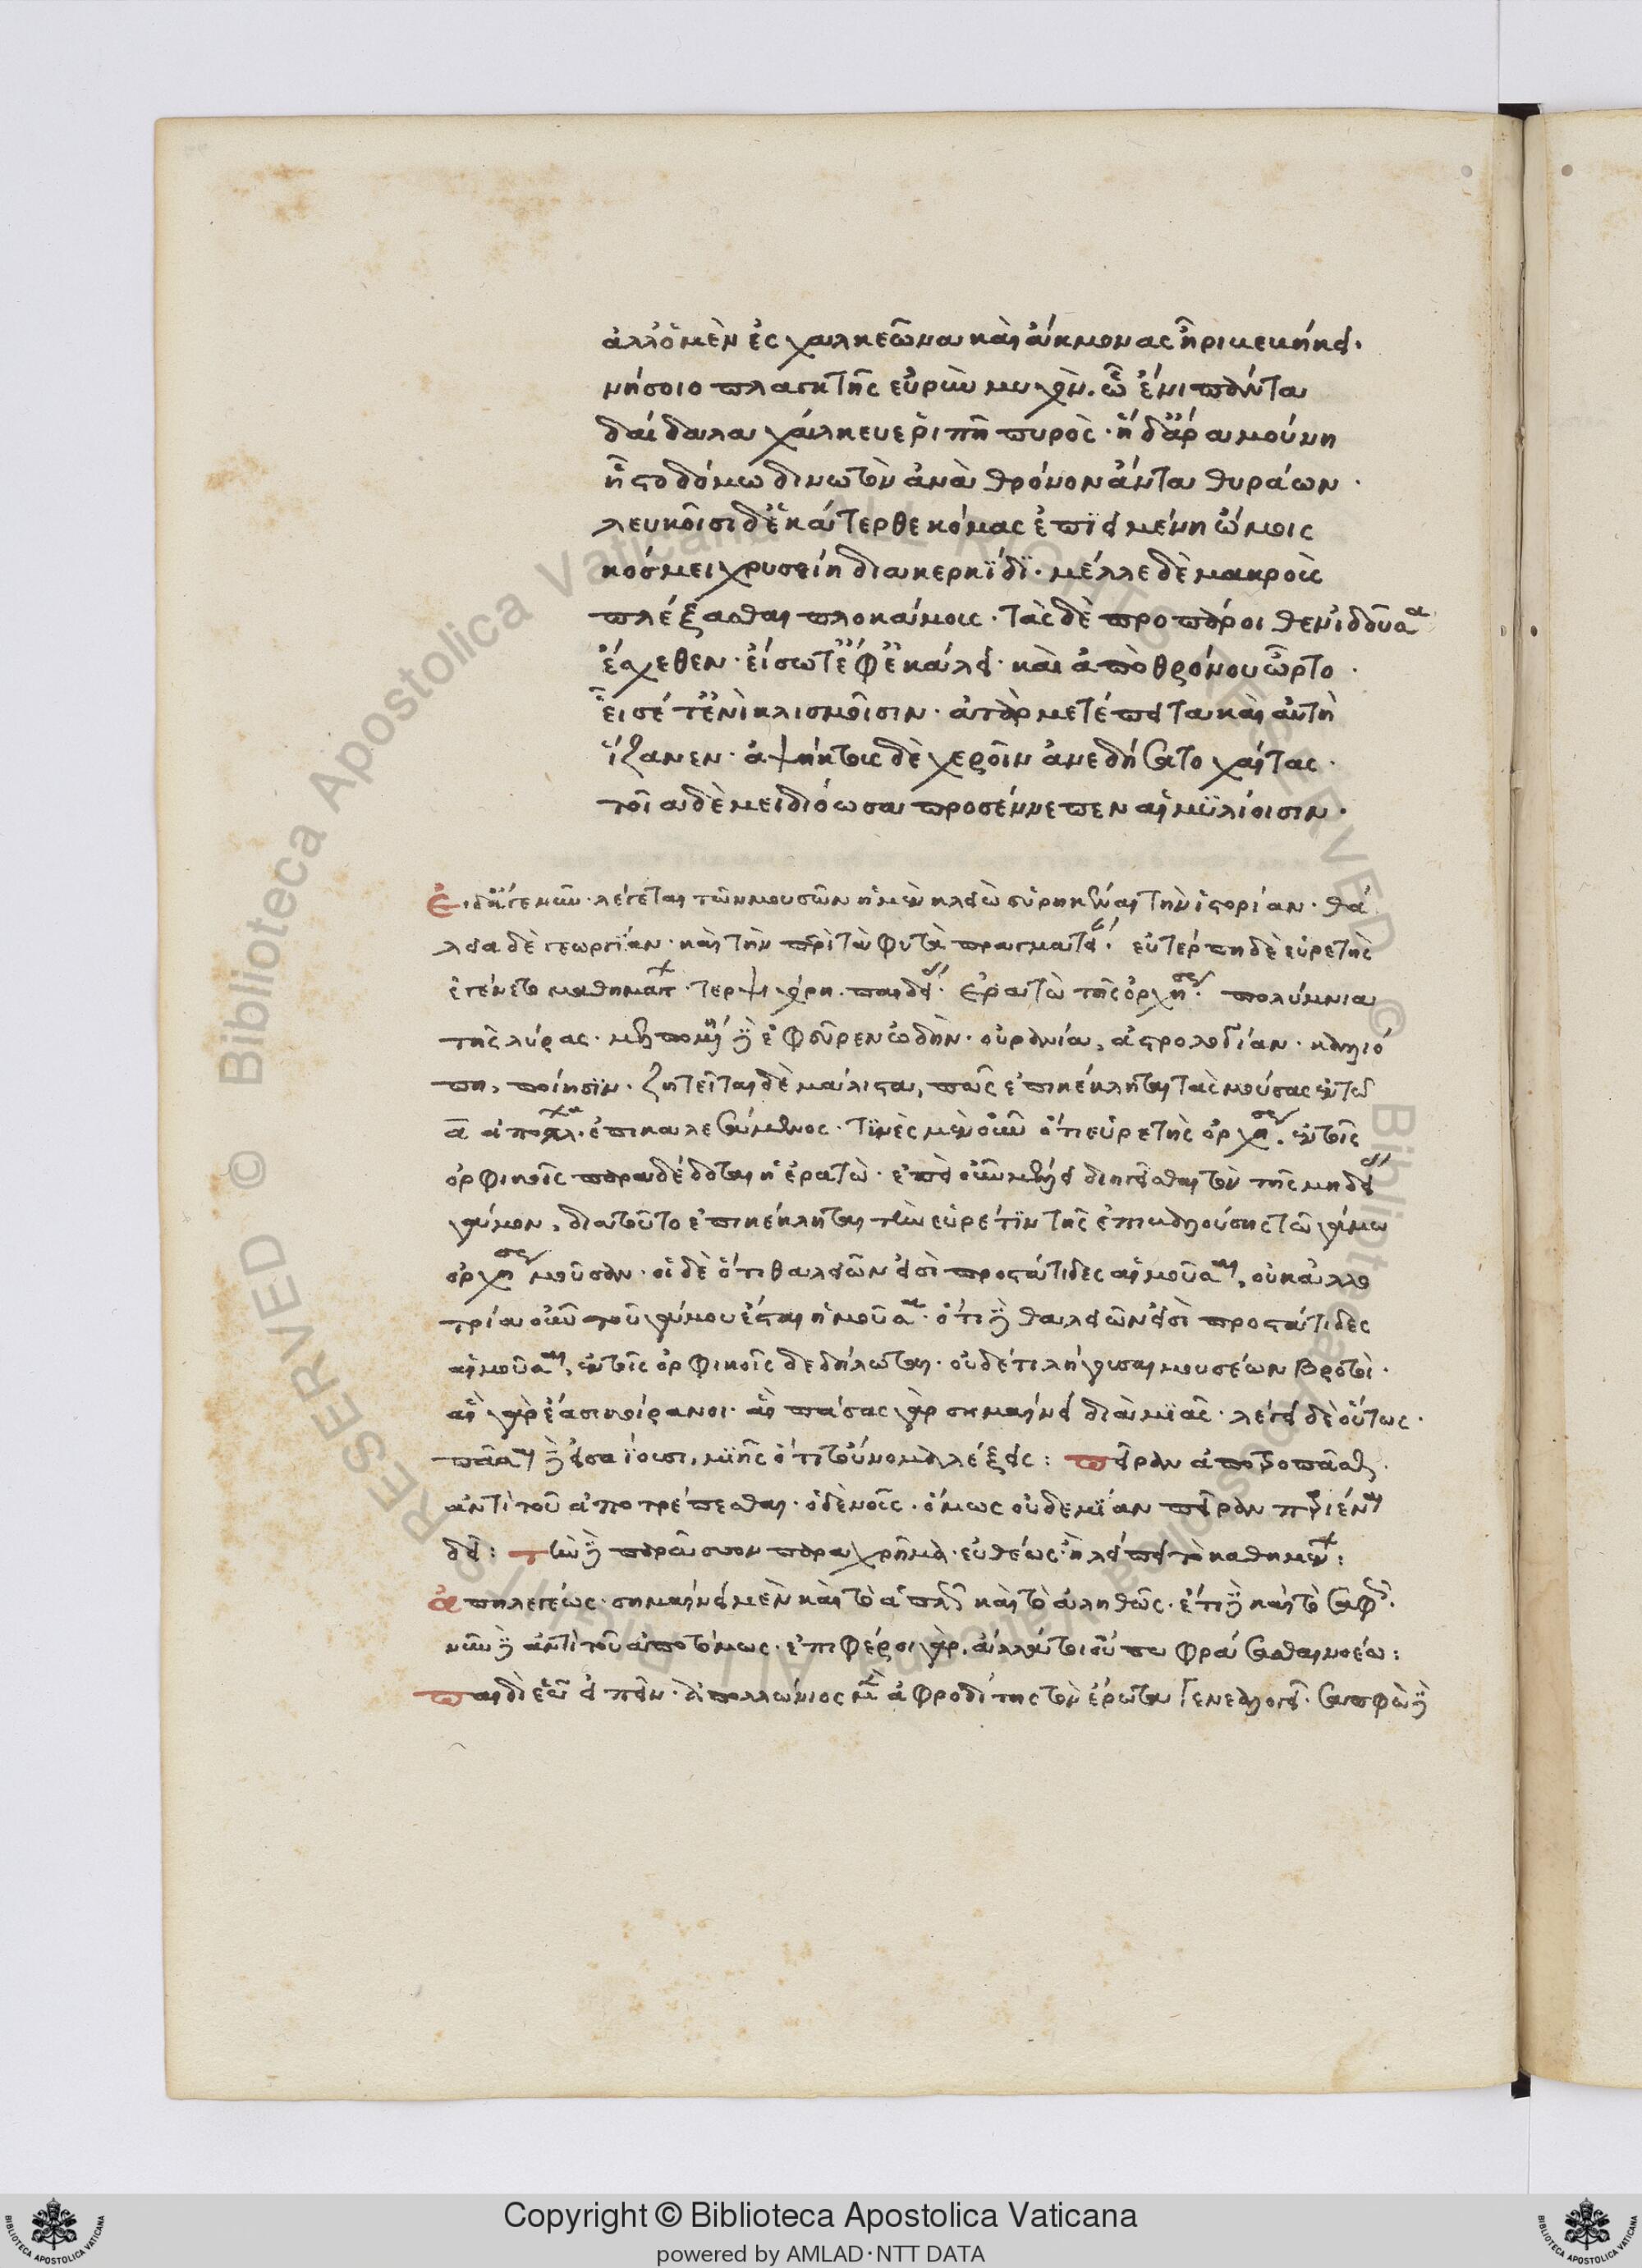 ἀλλ' ὁ μὲν ἐς χαλκεῶνα καὶ ἄκμονας ἦρι βεβήκει·
νήσοιο πλαγκτῆς εὐρὺν μυχὸν. ᾧ ἔνι πάντα
δαίδαλα χάλκευε ῥιπῇ πυρός· ἡ δ' ἄρα μούνη
ἧστο δόμω δινωτὸν ἀνὰ θρόνον ἄντα θυράων·
λευκοῖσι δ' ἑκάτερθε κόμας ἐπιειμένη ὤμοις
κόσμει χρυσείη διὰ κερκίδι· μέλλε δὲ μακροὺς
πλέξασθαι πλοκάμους· τὰς δὲ προπάροιθεν ἰδοῦσα
ἔσχεθεν· εἴσω τέ σφ' ἐκάλει· καὶ ἀπὸ θρόνου ὦρτο·
εἷσέ τ' ἐνὶ κλισμοῖσιν· ἀτὰρ μετέπειτα καὶ αὐτὴ
ἵζανεν· ἀψήκτους δὲ χεροῖν ἀνεδήσατο χαίτας·
τοῖα δὲ μειδιόωσα προσέννεπεν αἱμυλίοισιν·
Εἰ δ' ἄγε νῦν· λέγεται τῶν μουσῶν ἡ μὲν κλειὼ εὑρηκέναι τὴν ἱστορίαν· θά
λεια δὲ γεωργίαν· καὶ τὴν περὶ τὰ φυτὰ πραγματείαν· εὐτέρπη δὲ εὑρετὴς
ἐγένετο μαθημάτων· τερψιχόρη παιδείας· Ἐρατὼ τῆς ὀρχήσεως· πολύμνια
τῆς λύρας· μελπομένη δὲ ἐφεῦρεν ὠδήν· οὐρανία, ἀστρολογίαν· καλλιό
πη, ποίησιν· ζητεῖται δὲ μάλιστα, πῶς ἐπικέκληται τὰς μούσας ἐν τῶ
ὀρφικοῖς παραδέδοται ἡ ἐρατὼ· ἐπεὶ οὖν μέλλει διηγεῖσθαι τὸν τῆς μηδείας
γάμον, διὰ τοῦτο ἐπικέκληται τὴν εὑρέτιν τῆς ἐπιτελούσης τῶ γάμω
ὀρχήσεως μοῦσαν· οἱ δὲ ὅτι θαλειῶν εἰσὶ προστάτιδες αἱ μοῦσαι, οὐκ ἀλλο
τρία οὖν τοῦ γάμου ἔσται ἡ μοῦσα· ὅτι δὲ θαλειῶν εἰσὶ προστάτιδες
αἱ μοῦσαι, ἐν τοῖς ὀρφικοῖς δεδήλωται· οὐδέ τι λήγουσαι μουσέων βροτοὶ·
αἳ γὰρ ἔασι κοίρανοι· αἳ πάσας γὰρ σημαίνει διὰ μιᾶς· λέγει δὲ οὕτως·
ἀντὶ τοῦ ἀποτρέπεσθαι· ὁ δὲ νοῦς· ὅμως οὐδεμίαν πεῖραν προσιέναι
δεῖ: τὴν δὲ παρᾶσσον παραχρῆμα· εὐθέως·
Ἀπηλεγέως· σημαίνει μὲν καὶ τὸ ἁπλῶς καὶ τὸ ἀληθῶς· ἔτι δὲ καὶ τὸ σαφῶς.
νῦν δὲ ἀντὶ τοῦ ἀποτόμως· ἐπιφέρει γὰρ, ἀλλά τοι οὔπω φράσσασθαι νοέω:
Παιδὶ ἑῶ εἰπεῖν· ἀπολλώνιος μὲν ἀφροδίτης τὸν ἔρωτα γενεαλογεῖ· σαπφὼ δὲ
Copyright © Biblioteca Apostolica Vaticana
powered by AMLAD·NTT DATA